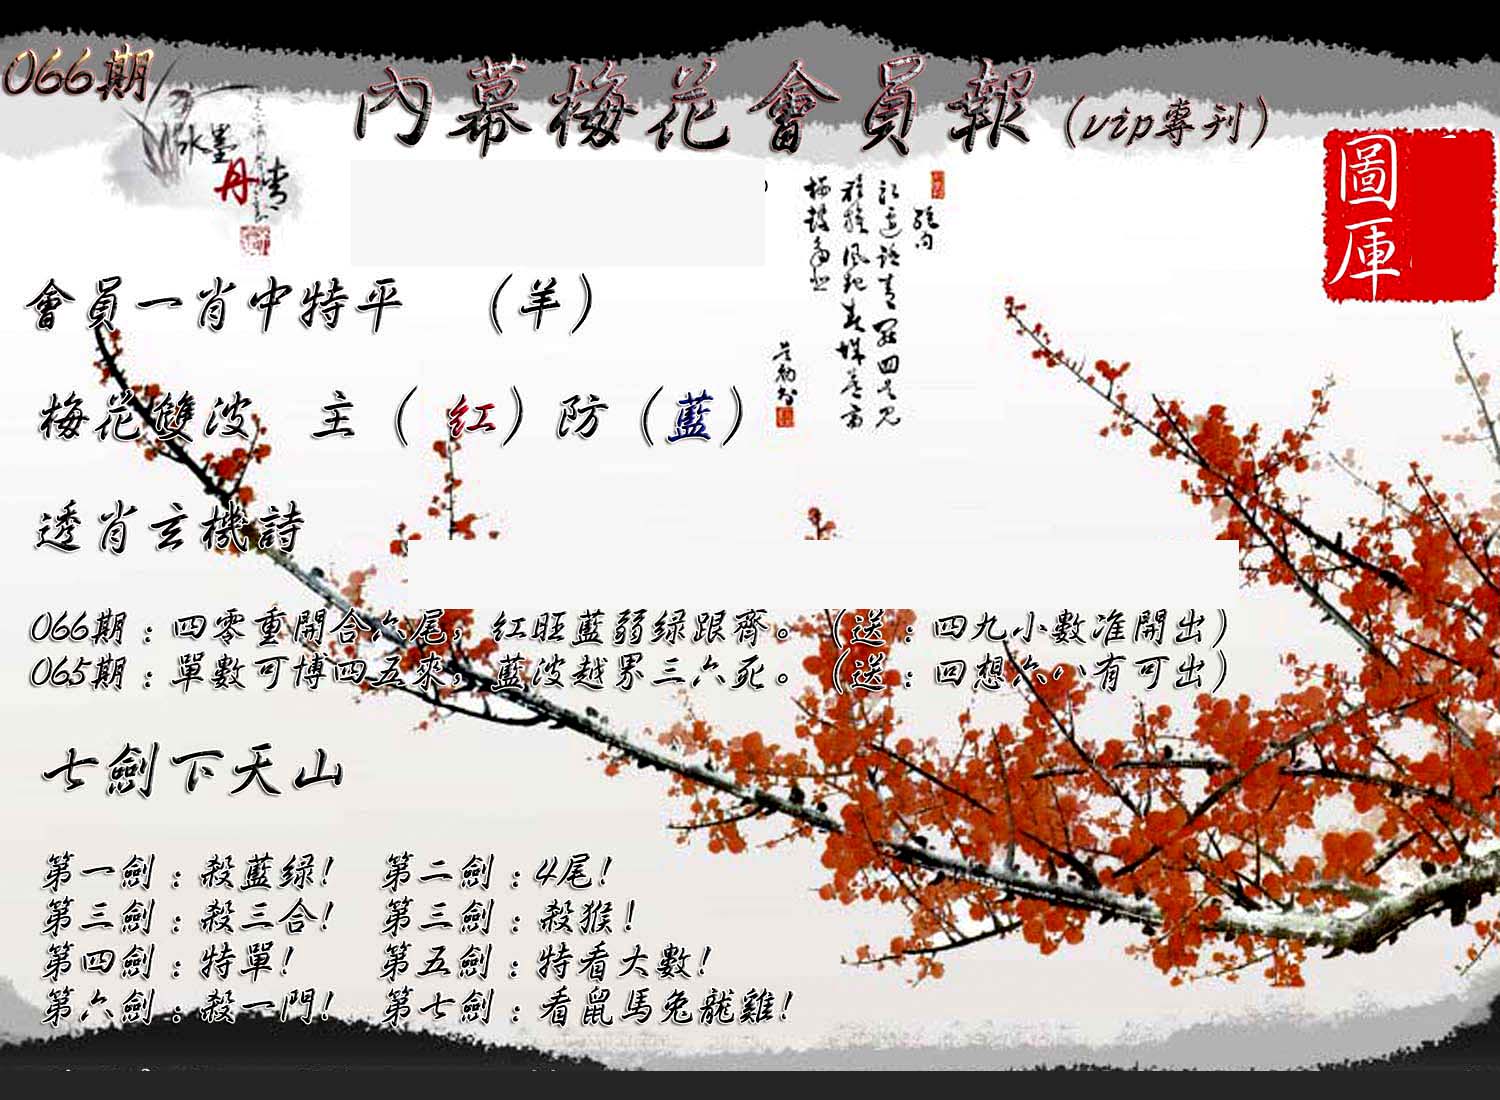 066期
內幕梅花會員報(vip專刊)
水墨
丹情
圖庫
會員一肖中特平 (羊)
梅花雙波 主(紅)防(藍)
透肖玄機詩
066期:四零重開合六尾,红旺藍弱绿跟齊。(送:四九小數准開出)
065期:單數可博四五來,藍波越界三六死。(送:四想六八有可出)
七劍下天山
第一劍:殺藍绿! 第二劍:4尾!
第三劍:殺三合! 第三劍:殺猴!
第四劍:特單! 第五劍:特看大數!
第六劍:殺一門! 第七劍:看鼠馬兔龍雞!